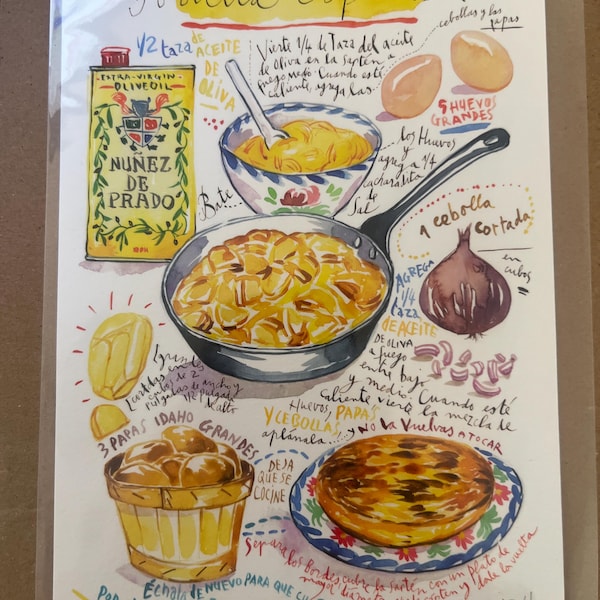 1/2 taza
de
ACEITE
DE
OLIVA
Vierte 1/4 de Taza del aceite
de oliva en la sartén a
fuego medio. Cuando esté
caliente, agrega las...
cebollas y las
papas
5 HUEVOS
GRANDES
EXTRA-VIRGIN
OLIVE OIL
NUÑEZ
DE
PRADO
Bate...
los Huevos
y
agrega 1/4
cucharadita
de
Sal
1 cebolla
cortada
en
cubos
AGREGA
1/4
taza
DE ACEITE
DE OLIVA
a fuego
entre bajo
y medio. Cuando esté
caliente vierte la mezcla de
Huevos, PAPAS
Y CEBOLLAS
aplánala... y NO VA VUELVAS A TOCAR
Grandes
cortadas en
de 2
pulgadas de ancho y
1/2 pulgada
de alto
3 PAPAS IDAHO GRANDES
DEJA
QUE SE
COCINE
Separa los bordes, cubre la sartén con un plato de
mayor
dale la vuelta
Échala de NUEVO PARA QUE